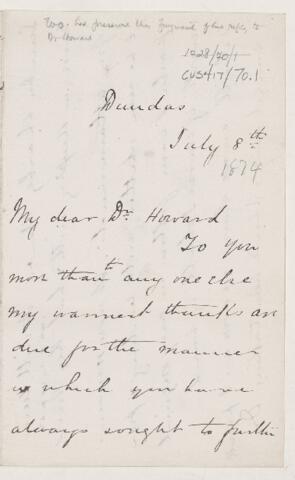 has preserved this fragment of his reply to
Dr Howard
1228/70/1
CUS417/70.1
Dundas
July 8th
1874
My dear Dr. Howard
To you
more than any one else
my warmest thanks are
due for the manner
in which you have
always sought to further